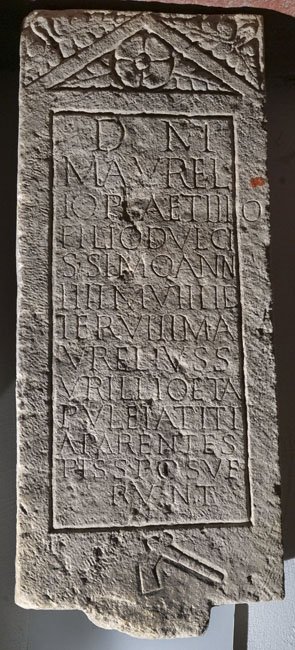 D M
M AVREL
IO P AETIN O
FILIO DVLC
S SIMO ANN
IIII M VIIII D
M A
VRELIVS S
VRILLIO ET A
PVLEIA TITI
A PARENTES
PISS POSVE
RVNT